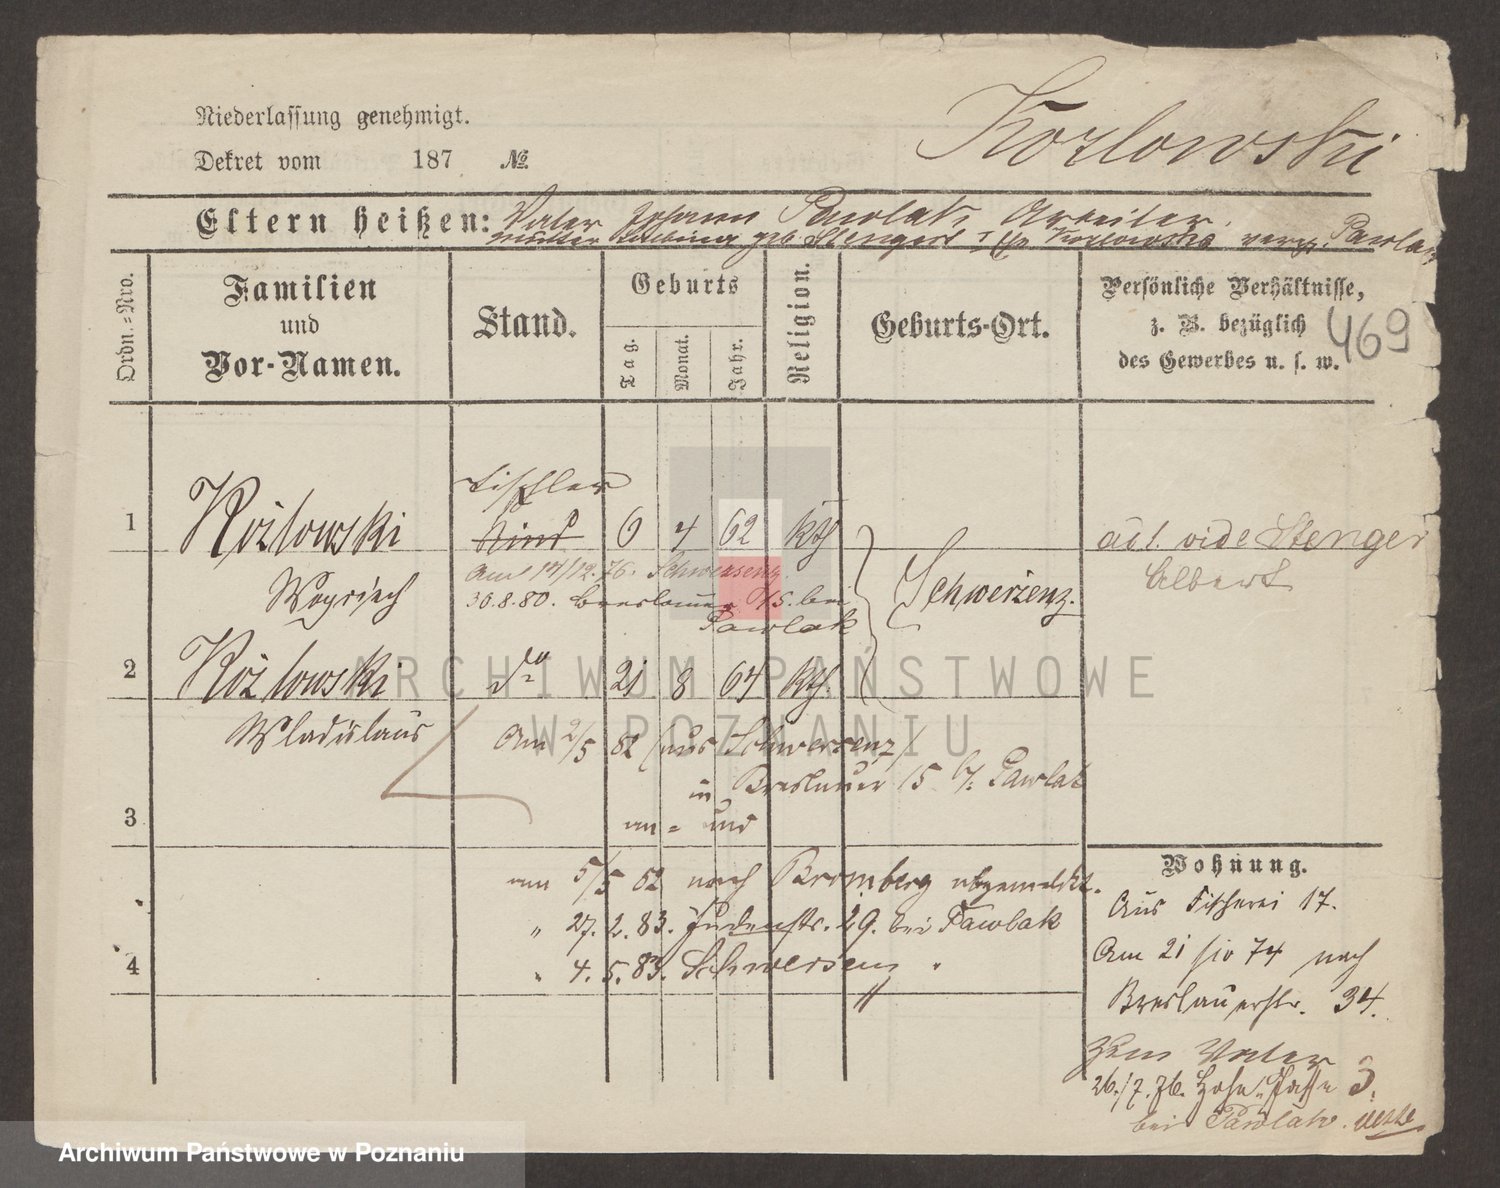 Niederlassung genehmigt.
Dekret vom 187 №
Kozlowski
Eltern heißen: Vater Johann Pawlak Arbeiter.
Mutter geb. Stengert Kozlowska Pawlak
Ordn.-Nro.
Familien
und
Vor-Namen.
Stand.
Geburts
Tag.
Monat.
Jahr.
Religion.
Geburts-Ort.
Persönliche Verhältnisse,
z. B. bezüglich
des Gewerbes u. s. w.
469
Tischler
1 Kozlowski Kind 6 4 62 kth
Am 14/12. 76. Schwersenz
Woyciech 30.8.80. Breslauer 15. bei
Pawlak
Schwerzenz.
vide Stenger
Albert
2 Kozlowski do 21 8 64 kth.
Wladislaus Am 2/5 82 (aus Schwersenz)
in Breslauer 15 b/. Pawlak
3 an = und
am 5/5 82 nach Bromberg abgemeldet.
" 27. 2. 83. Judenstr. 29. bei Pawlak
4 " 4. 5. 83. Schwersenz "
Wohnung.
Aus Fischerei 17.
Am 21 74 nach
Breslauerstr. 34.
zum Vater
26./7. 76. Hohe Gasse 3.
bei Pawlak.
ARCHIWUM PAŃSTWOWE
W POZNANIU
Archiwum Państwowe w Poznaniu